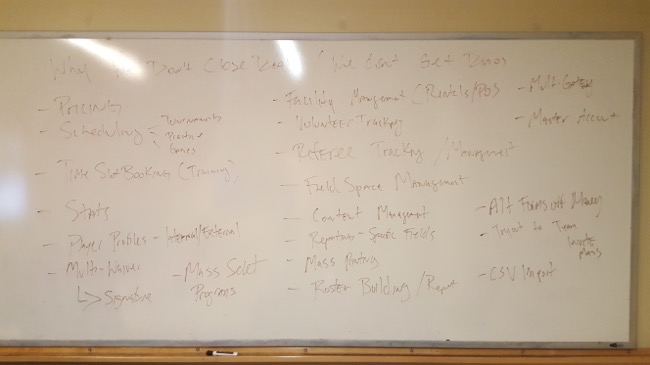 Why We Don't Close Deals / We Don't Get Demos
- Pricing
- Scheduling - Tournaments
- Practice
- Games
- Time Slot Booking (Training)
- Stats
- Player Profiles - Internal/External
- Multi-Waiver
↳ Signature
- Mass Select
Programs
- Facility Management (Rentals/POS
- Volunteer Tracking
- Referee Tracking / Management
- Field Space Management
- Content Management
- Reporting - Specific Fields
- Mass
- Roster Building / Report
- Multi-
- Master Account
- Alt Forms w/o Money
- to Team
- CSV Import